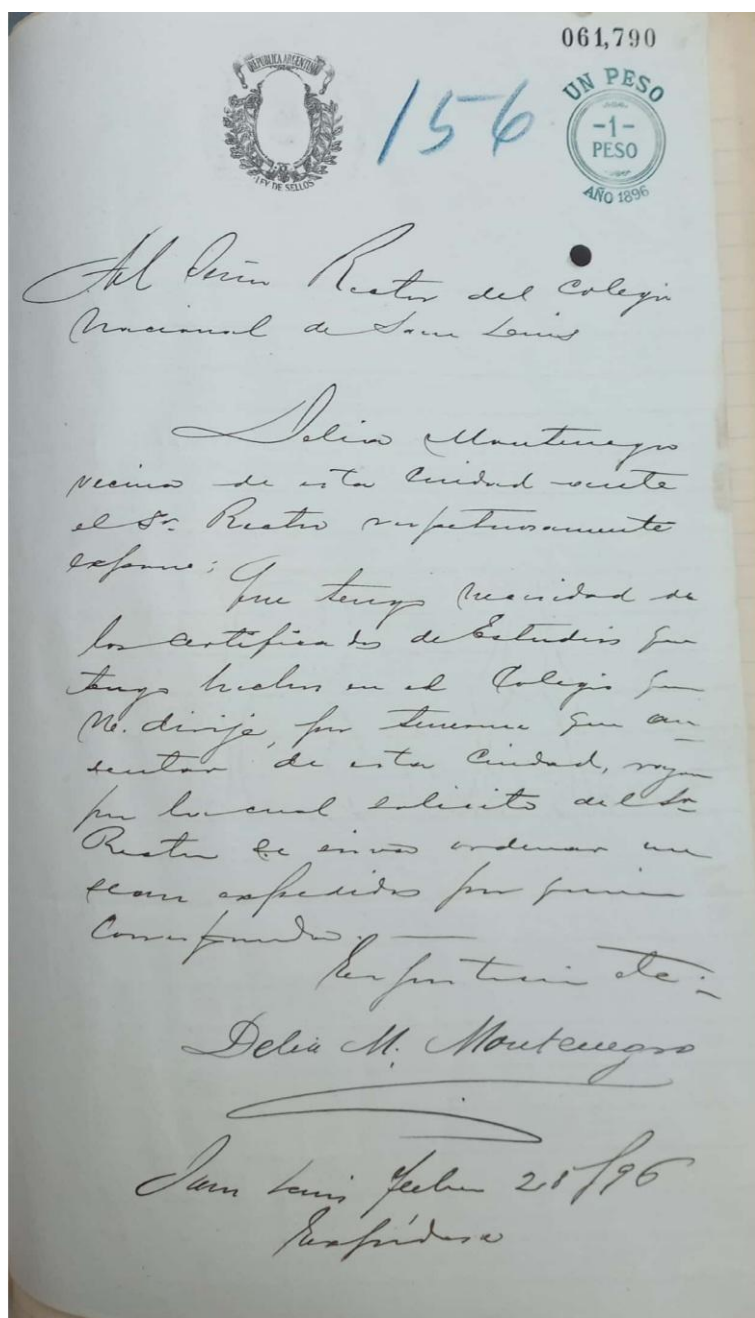 061,790
REPUBLICA ARGENTINA
156
UN PESO
-1-
PESO
LEY DE SELLOS
AÑO 1896
Al Señor Rector del Colegio
Nacional de San Luis
Delia Montenegro
vecina de esta Ciudad ante
el Sr. Rector respetuosamente
expone:
Que tengo necesidad de
los certificados de Estudios que
tengo hechos en el Colegio que
Ud. dirije, por tenerme que au-
sentar de esta Ciudad, razon
por la cual solicito del Sr
Rector se sirva ordenar me
sean expedidos por quien
corresponda.
Es justicia etc.
Delia M. Montenegro
San Luis Febr 25/96
Expídase